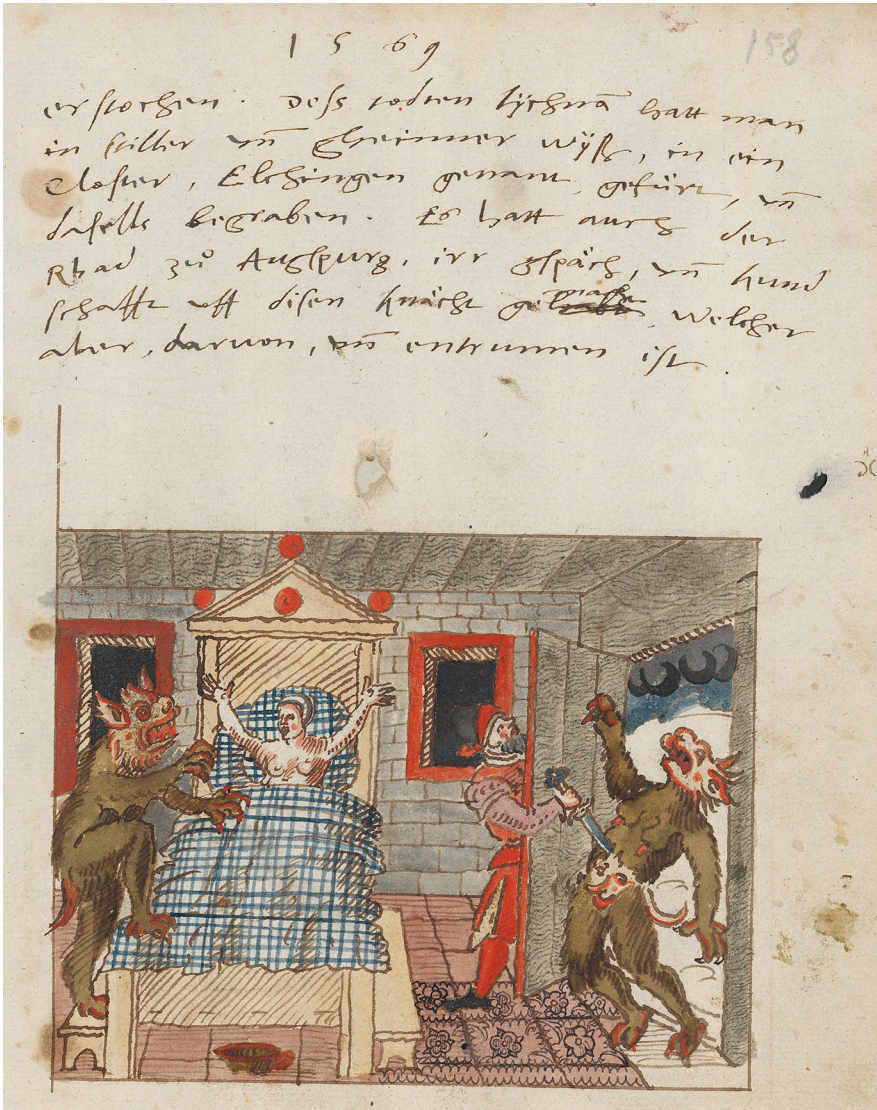 1569
158
erstochen. Dess todten lÿchnā hatt man
in stiller vn̄ gheimmer wÿß, in ein
Closter, Elchingen genant, gefürt, vn̄
daselbs begraben. Es hatt auch der
Rhad zů Augspurg, irr gspäch, vn̄ kund
schafft vff disen knächt gemacht, Welcher
aber, daruon, vn̄ entrunnen ist.